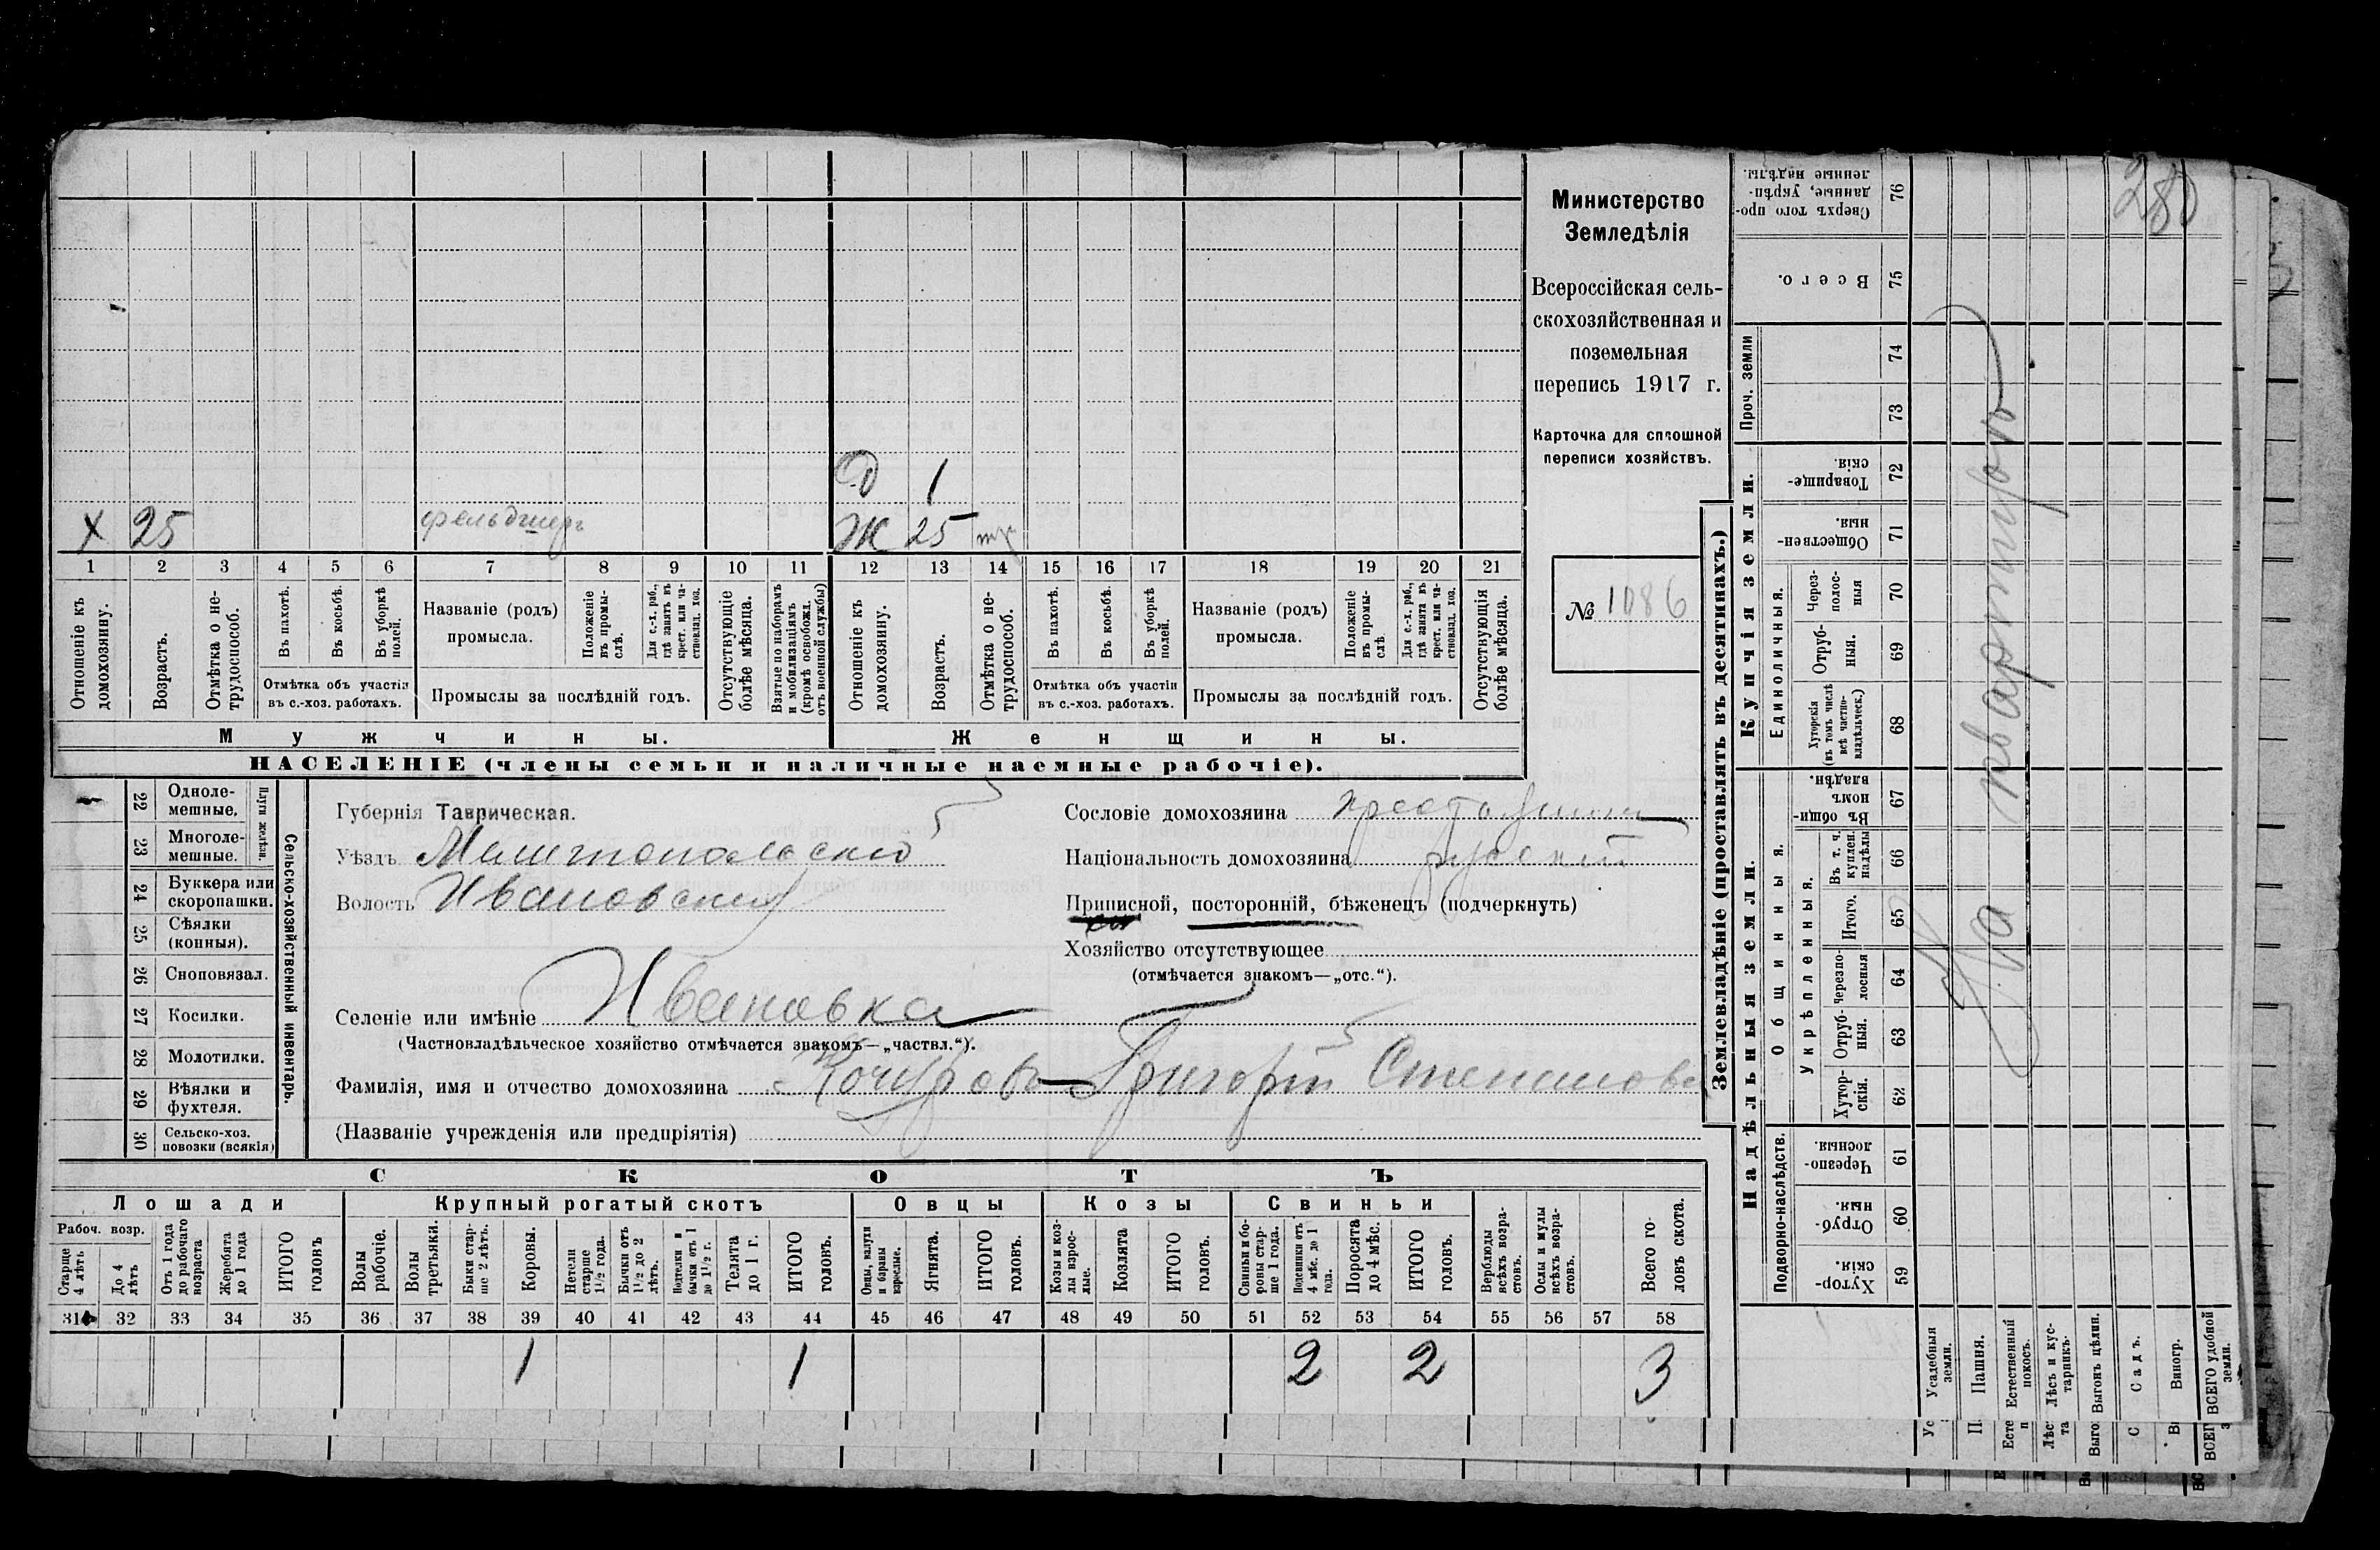 280
Министерство
Земледѣлія
Всероссійская сель-
скохозяйственная и
поземельная
перепись 1917 г.
Карточка для сплошной
переписи хозяйствъ.
№ 1086
Д 1
Х 25 фельдшеръ Ж 25
1 2 3 4 5 6 7 8 9 10 11 12 13 14 15 16 17 18 19 20 21
Отношеніе къ домохозяину.
Возрастъ.
Отмѣтка о не-трудоспособ.
Въ пахотѣ.
Въ косьбѣ.
Въ уборкѣ полей.
Отмѣтка объ участіи
въ с.-хоз. работахъ.
Названіе (родъ)
промысла.
Положеніе въ промы-слѣ.
Для с.-х. раб., гдѣ занятъ въ крест. или ча-стновлад. хоз.
Промыслы за послѣдній годъ.
Отсутствующіе болѣе мѣсяца.
Взятые по наборамъ и мобилизаціямъ (кромѣ освобожд. отъ военной службы)
Отношеніе къ домохозяину.
Возрастъ.
Отмѣтка о не-трудоспособ.
Въ пахотѣ.
Въ косьбѣ.
Въ уборкѣ полей.
Отмѣтка объ участіи
въ с.-хоз. работахъ.
Названіе (родъ)
промысла.
Положеніе въ промы-слѣ.
Для с.-х. раб., гдѣ занята въ крест. или ча-стновлад. хоз.
Промыслы за послѣдній годъ.
Отсутствующія болѣе мѣсяца.
Мужчины. Женщины.
НАСЕЛЕНІЕ (члены семьи и наличные наемные рабочіе).
Сельско-хозяйственный инвентарь.
Плуги желѣзн.
22 Однолемешные.
23 Многолемешные.
24 Буккера или скоропашки.
25 Сѣялки (конныя).
26 Сноповязал.
27 Косилки.
28 Молотилки.
29 Вѣялки и фухтеля.
30 Сельско-хоз. повозки (всякія)
Губернія Таврическая.
Уѣздъ Мелитопольскій
Волость Ивановская
Сословіе домохозяина крестьянин
Національность домохозяина русскій
Приписной, посторонній, бѣженецъ (подчеркнуть)
Хозяйство отсутствующее
(отмѣчается знакомъ—„отс.“).
Селеніе или имѣніе Ивановка
(Частновладѣльческое хозяйство отмѣчается знакомъ—„частвл.“).
Фамилія, имя и отчество домохозяина Григорій Степанов
(Названіе учрежденія или предпріятія)
СКОТЪ
Лошади Крупный рогатый скотъ Овцы Козы Свиньи
Рабоч. возр.
Старше 4 лѣтъ
До 4 лѣтъ
Отъ 1 года до рабочаго возраста
Жеребята до 1 года
ИТОГО головъ
Волы рабочіе.
Волы третьяки.
Быки стар-ше 2 лѣтъ.
Коровы.
Нетели старше 1½ года.
Бычки отъ 1½ до 2 лѣтъ.
Подтелки и бычки отъ 1 до 1½ г.
Телята до 1 г.
ИТОГО головъ.
Овцы, валухи и бараны взрослые.
Ягнята.
ИТОГО головъ.
Козы и коз-лы взрос-лые.
Козлята
ИТОГО головъ.
Свиньи и бо-ровы стар-ше 1 года.
Подсвинки отъ 4 мѣс. до 1 года.
Поросята до 4 мѣс.
ИТОГО головъ.
Верблюды всѣхъ возра-стовъ.
Ослы и мулы всѣхъ возра-стовъ.
Всего го-ловъ скота.
31 32 33 34 35 36 37 38 39 40 41 42 43 44 45 46 47 48 49 50 51 52 53 54 55 56 57 58
1 1 2 2 3
Землевладѣніе (проставлять въ десятинахъ.)
Надѣльныя земли. Купчія земли. Проч. земли
Подворно-наслѣдств.
Общинныя.
Укрѣпленныя.
Единоличныя.
Хутор-скія. 59
Отруб-ныя. 60
Черезпо-лосныя. 61
Хутор-скія. 62
Отруб-ныя. 63
Черезпо-лосныя 64
Итого. 65
Въ т. ч. куплен. надѣлы 66
Въ общин-номъ владѣн. 67
Хуторскія (въ томъ числѣ всѣ частно-владѣльческ.) 68
Отруб-ныя. 69
Через-полос-ныя 70
Обществен-ныя. 71
Товарище-скія. 72
73
74
Всего. 75
Сверхъ того про-данные, укрѣп-ленные надѣлы. 76
На квартирѣ
Усадебныя земли.
Пашня.
Естественный покосъ.
Лѣсъ и кус-тарникъ.
Выгонъ цѣлин.
Садъ.
Виногр.
ВСЕГО удобной земли.